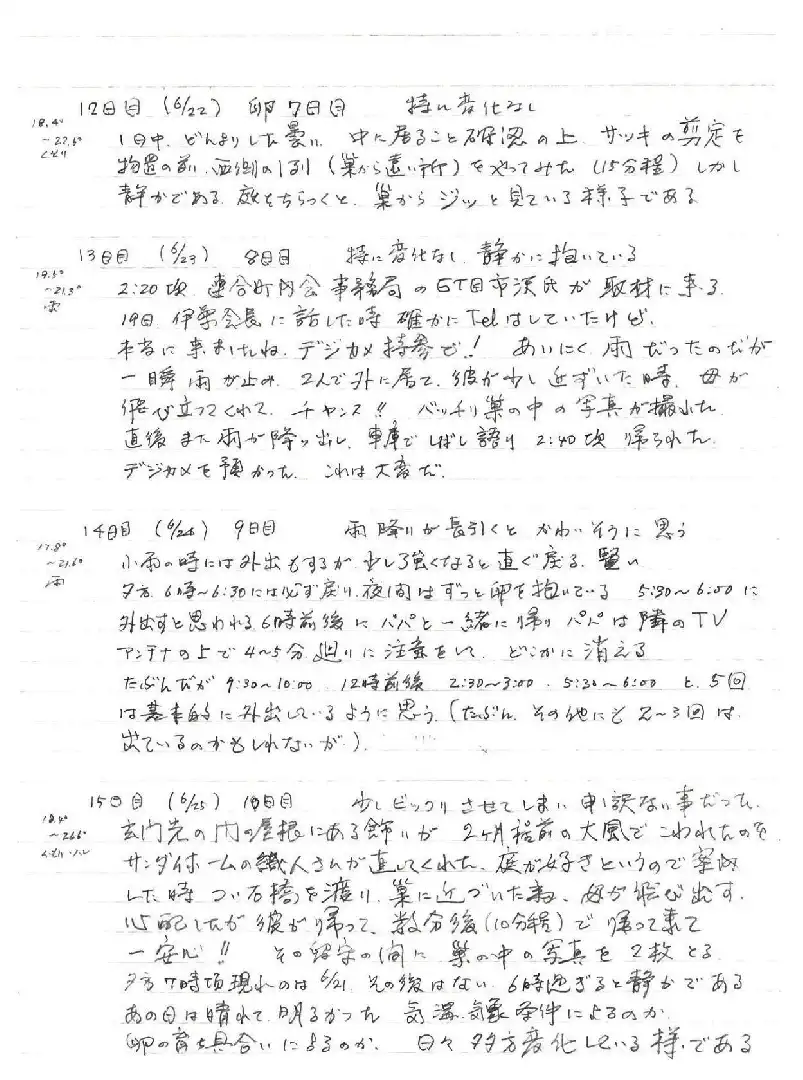 12日目 (6/22) 卵7日目 特に変化なし
18.4°
~22.6°
くもり
1日中、どんよりした曇い、中に居ること確認の上、サツキの剪定を
物置の前、西側の1列 (巣から遠い所) をやってみた (15分程) しかし
静かである、庭をちらつくと、巣から ジッと見ている様子である
13日目 (6/23) 8日目 特に変化なし、静かに抱いている
19.5°
~21.3°
雨
2:20頃、連合町内会事務局の 市源氏が取材に来る
19日、伊草会長に話した時 確かにTelはしていたけど、
本当に来ましたね、デジカメ持参で! あいにく、雨だったのだが
一瞬雨が止み、2人で外に居て、彼が少し近ずいた時、母が
飛び立ってくれて、チャンス!! バッチリ巣の中の写真が撮れた
直後また雨が降り出し、車庫でしばし語り 2:40頃 帰られた
デジカメを預かった、これは大変だ.
14日目 (6/24) 9日目 雨降りが長引くと かわいそうに思う
17.8°
~21.6°
雨
小雨の時には外出もするが、少し強くなると直ぐ戻る、賢い
夕方、6時~6:30には必ず戻り、夜間はずっと卵を抱いている 5:30~6:00に
外出すと思われる、6時前後にパパと一緒に帰り パパは隣のTV
アンテナの上で4~5分 廻りに注意をして、どこかに消える
たぶんだが 9:30~10:00、12時前後 2:30~3:00、5:30~6:00 と、5回
は基本的に外出しているように思う、(たぶん、その他にも 2~3回は
出ているのかもしれないが.)
15日目 (6/25) 10日目 少しビックリさせてしまい 申し訳ない事だった.
18.4°
~26.6°
くもり・ハレ
玄関先の門の屋根にある飾りが 2ヶ月程前の大風でこわれたのを
サンダイホームの職人さんが直してくれた、庭が好きというので案内
した時 つい石橋を渡り、巣に近づいた為、母が飛び出す.
心配したが 彼が帰って、数分後 (10分程) で帰って来て
一安心!! その留守の間に 巣の中の写真を 2枚とる
夕方7時頃現れのは6/21、その後はない、6時過ぎると静かである
あの日は晴れて、明るかった 気温、気象条件によるのか、
卵の育ち具合いによるのか、日々 夕方変化している様である